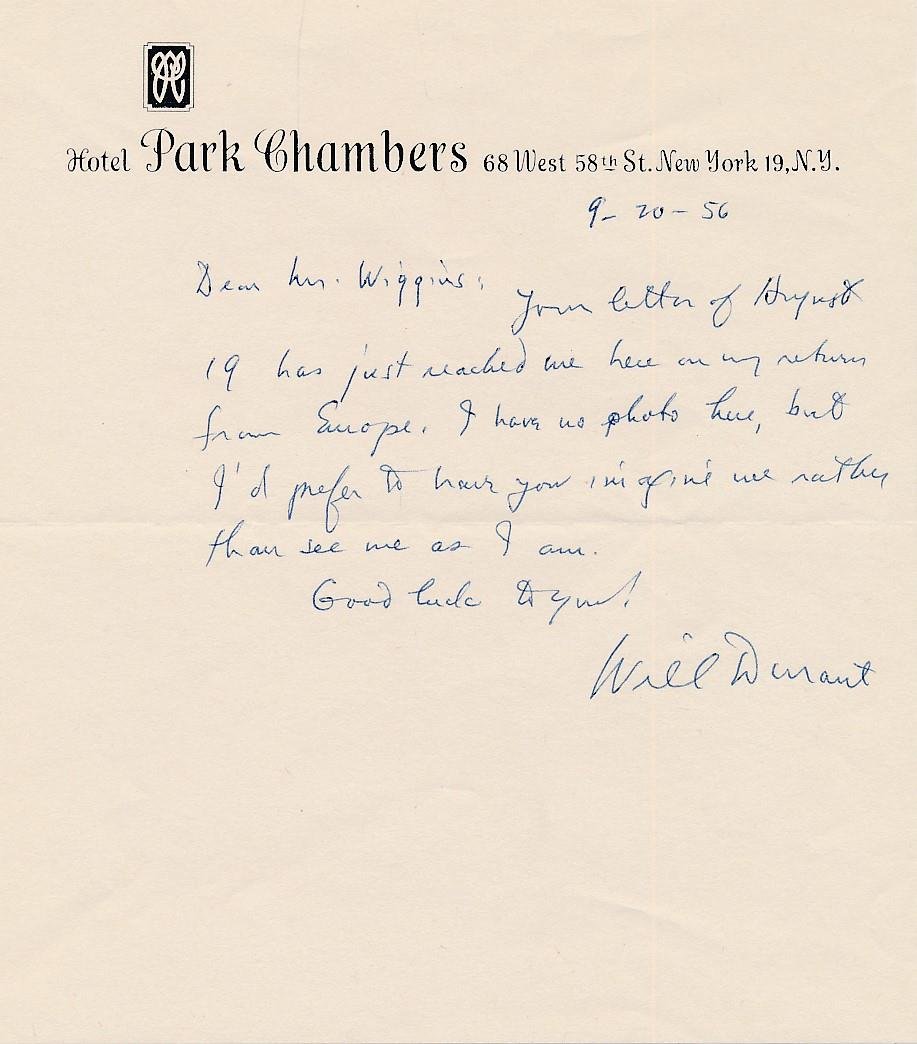 Hotel Park Chambers 68 West 58th St. New York 19, N.Y.
9-20-56
Dear Mr. Wiggins:
Your letter of August
19 has just reached me here on my return
from Europe. I have no photo here, but
I'd prefer to have you imagine me rather
than see me as I am.
Good luck to you!
Will Durant